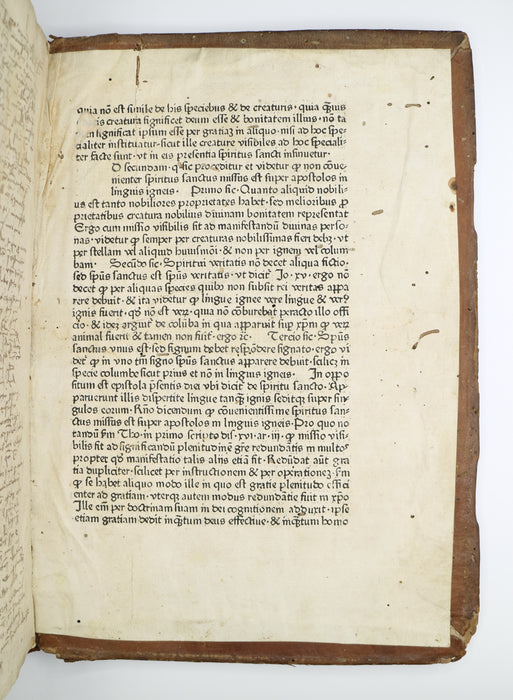 quia nō est simile de his speciebus & de creaturis · quia q̄uis
is creatura significet deum esse & bonitatem illius · nō ta
significat ipsum esse per gratiaȝ in aliquo · nisi ad hoc spe-
cialiter instituatur · sicut ille creature visibiles ad hoc speciali-
ter facte sunt · vt in eis presentia spiritus sancti insinuetur ·
D secundam · q̄ sic proceditur et videtur ꝙ non cōue-
nienter spiritus sanctus missus est super apostolos in
linguis igneis · Primo sic · Quanto aliquid nobili-
us est tanto nobiliores proprietates habet · sed melioribus ꝓ
prietatibus creatura nobilius diuinam bonitatem representat
Ergo cum missio visibilis fit ad manifestandū diuinas perso-
nas · videtur ꝙ semper per creaturas nobilissimas fieri debȝ · vt
per stellam vel aliquid huiusmōi · & non per ignem vel colum-
bam · Secūdo sic · Spiritui veritatis nō decet aliqua fictio ·
sed spūs sanctus est spūs veritatis · vt dicit᷑ Io · xv · ergo nō
decet ꝙ per aliquas species quibo non subsit rei veritas appa
rere debuit · & ita videtur ꝙ lingue ignee vere lingue & verꝰ
ignis fuerit · qd̄ nō est verȝ · quia nō cōburebat᷑ peracto illo offi
cio · & ideȝ arguit᷑ de colūba in qua apparuit sup̄ xp̄m ꝙ veȝ
animal fuerit & tamen non fuit · ergo ⁊c · Tercio sic · Spūs
sanctus vnus est · sed signum debet respōdere signato · ergo vi
det᷑ ꝙ in vno tm̄ signo spūs sanctus apparere debuit · scilicȝ in
specie columbe sicut prius et nō in linguis igneis · In oppo
situm est epistola p̄sentis diei vbi dicit᷑ de spiritu sancto · Ap-
paruerunt illis dispertite lingue tanq̄ȝ ignis seditqȝ super sin
gulos eorum · Rn̄o dicendum ꝙ cōuenientissime spiritus san-
ctus missus est super apostolos in linguis igneis · Pro quo no
tandū s̄m Tho · in primo scripto dis · xvi · ar · iii · ꝙ missio visi-
bilis fit ad significandū plenitudinē gr̄e redundātis in multos
propter qd̄ manifestatio talis aliis etiā fit · Redūdat aūt gra
tia dupliciter · scilicet per instructionem & per operationeȝ · s̄m
ꝙ se habet aliquo modo ille in quo est gratie plenitudo effici
enter ad gratiam · vterqȝ autem modus redundātie fuit in xp̄o
Ille em̄ per doctrinam suam in dei cognitionem adduxit · ipse
etiam gratiam dedit inq̄tum deus effectiue · & inq̄tum homo